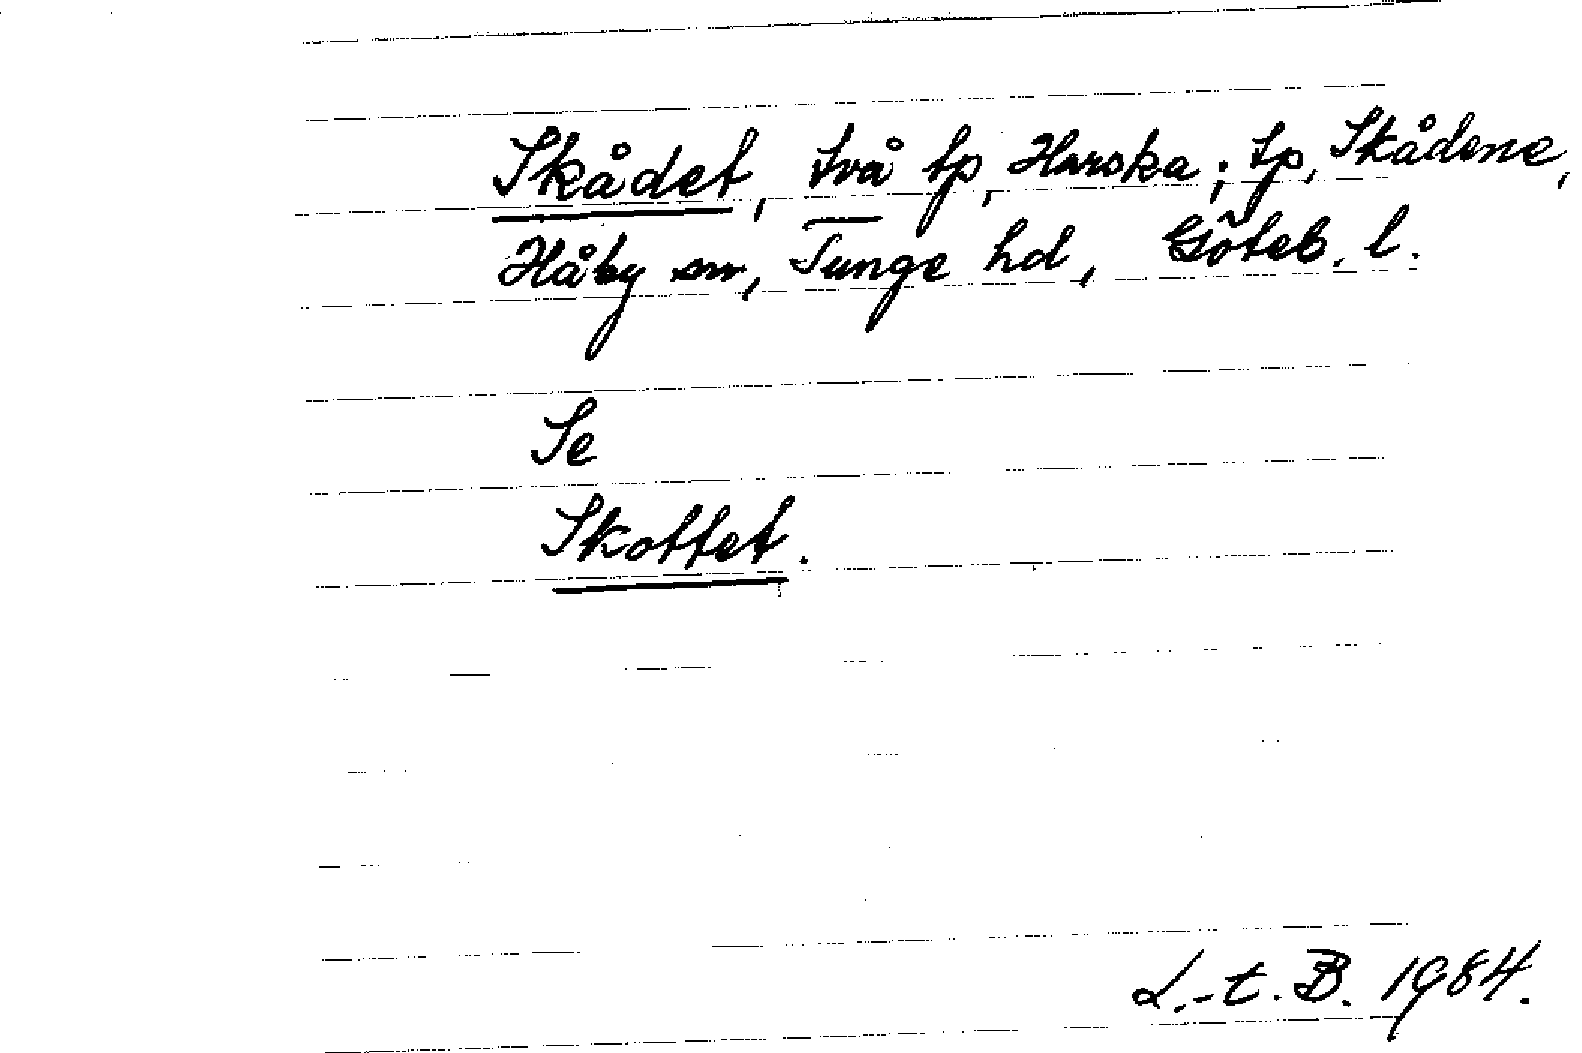 Skådet, två tp, Harska; tp, Skådene,
Håby sn, Tunge hd, Göteb. l.
Se
Skottet.
L.-t. B. 1984.